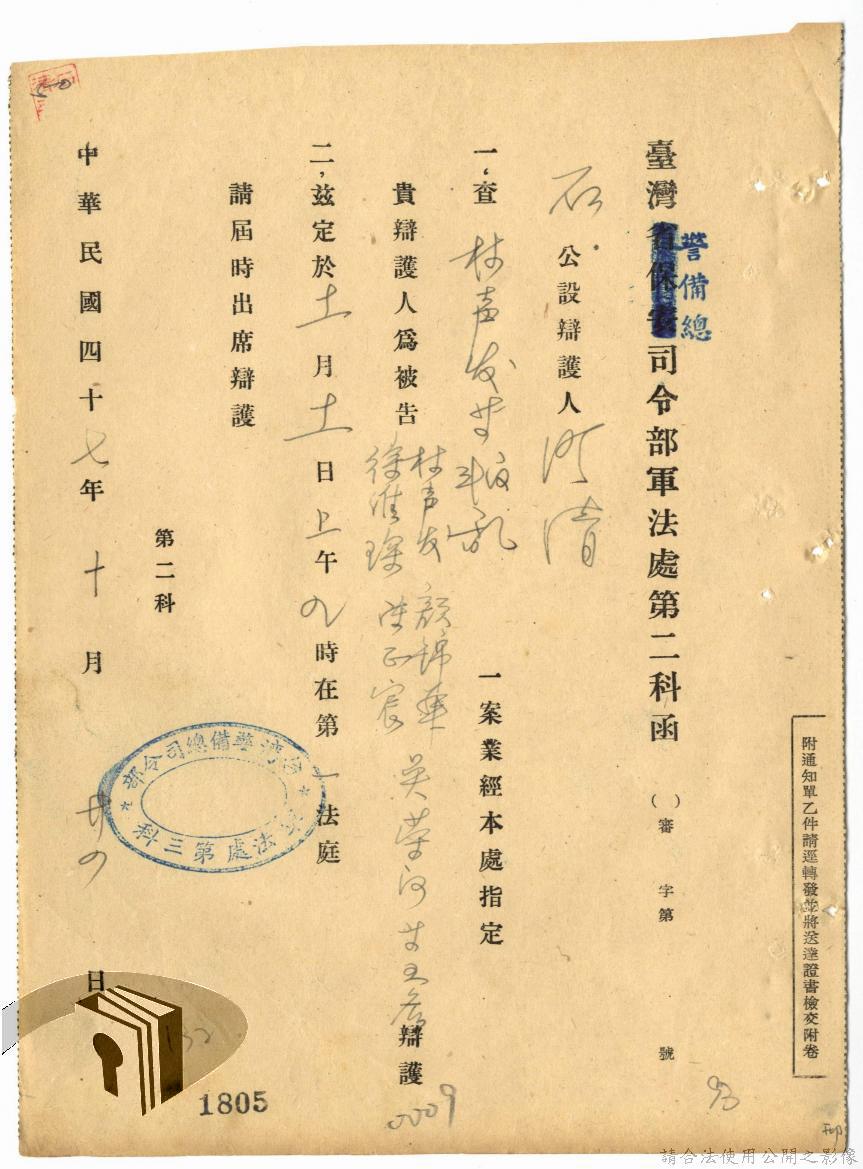 臺灣省保安司令部軍法處第二科函
警備總
( )審 字第 號
附通知單乙件請逕轉發並將送達證書檢交附卷
石 公設辯護人 明清
一、查 林声发等叛乱 一案業經本處指定
貴辯護人為被告 林声发 顏錦華 吳荣河等五名 辯護
徐淮琛 洪正宸
二、茲定於 十一 月 十一 日 上 午 九 時在第 一 法庭
請屆時出席辯護
第二科
中華民國四十 七 年 十 月 廿四 日
台湾警備總司令部
軍法處第三科
132
1805
0009
請合法使用公開之影像